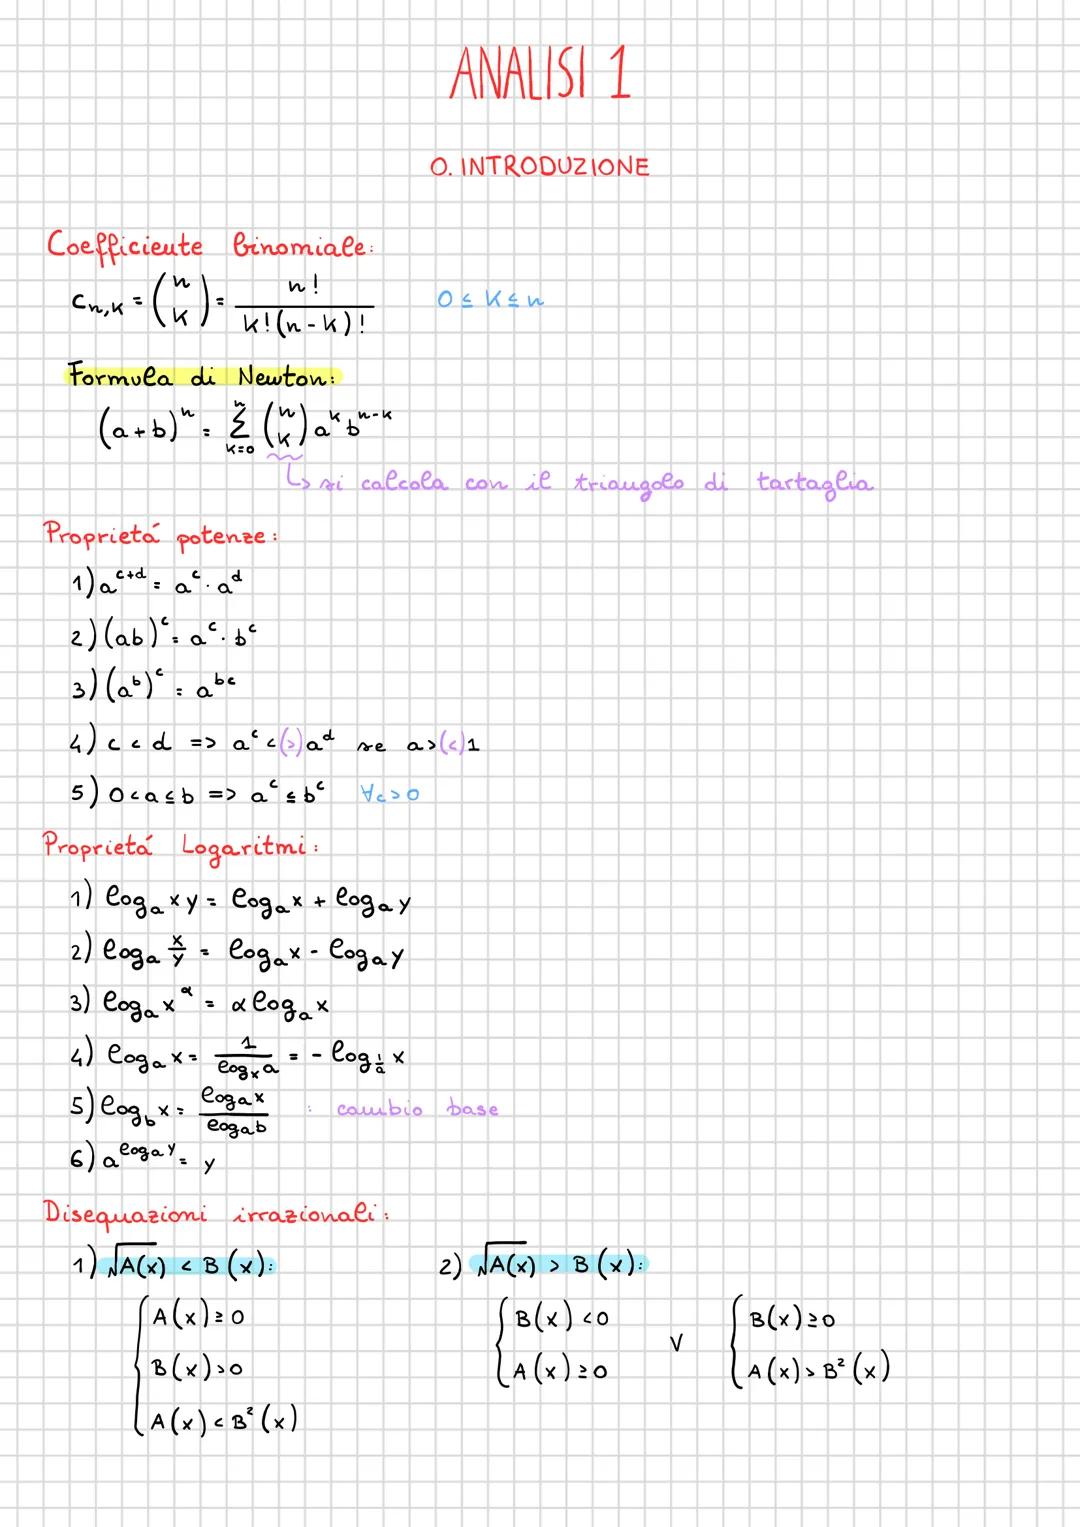 ANALISI 1
0. INTRODUZIONE
Coefficiente binomiale:
C_{n,k} = \binom{n}{k} = \frac{n!}{k!(n-k)!} 0 ≤ k ≤ n
Formula di Newton:
(a+b)^n = \sum_{k=0}^{n} \binom{n}{k} a^k b^{n-k}
↳ si calcola con il triangolo di tartaglia
Proprietá potenze:
1) a^{c+d} = a^c · a^d
2) (ab)^c = a^c · b^c
3) (a^b)^c = a^{bc}
4) c < d => a^c <(>) a^d se a >(<) 1
5) 0 < a ≤ b => a^c ≤ b^c ∀c>0
Proprietá Logaritmi:
1) log_a xy = log_a x + log_a y
2) log_a \frac{x}{y} = log_a x - log_a y
3) log_a x^α = α log_a x
4) log_a x = \frac{1}{log_x a} = - log_{\frac{1}{a}} x
5) log_b x = \frac{log_a x}{log_a b} : cambio base
6) a^{log_a y} = y
Disequazioni irrazionali:
1) √A(x) < B(x): 2) √A(x) > B(x):
{ A(x) ≥ 0 { B(x) < 0 ∨ { B(x) ≥ 0
B(x) > 0 A(x) ≥ 0 A(x) > B²(x)
A(x) < B²(x)